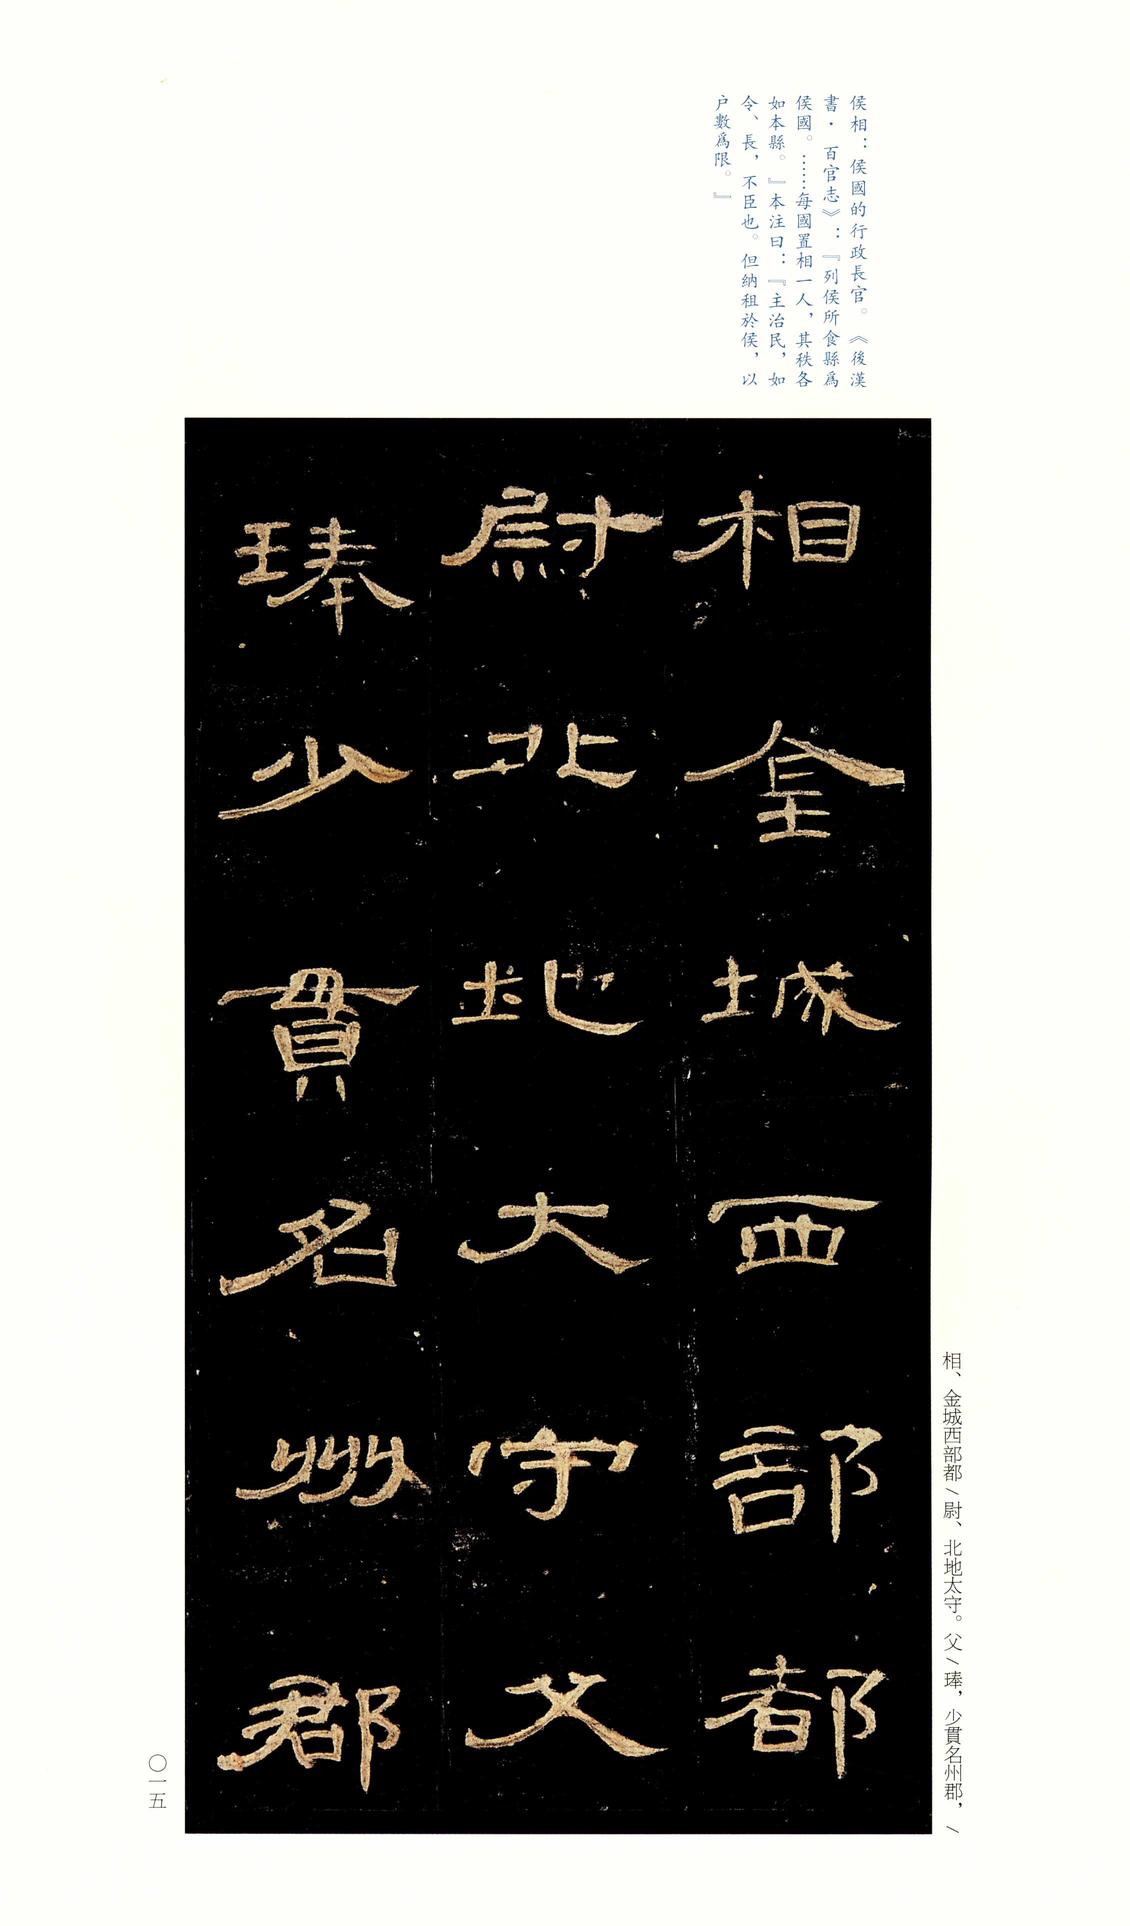 侯相：侯國的行政長官。《後漢
書·百官志》：『列侯所食縣爲
侯國。……每國置相一人，其秩各
如本縣。』本注曰：『主治民，如
令、長，不臣也。但納租於侯，以
户數爲限。』
相金城西部都
尉北地大守父
琫少貫名州郡
相、金城西部都／尉、北地太守。父／琫，少貫名州郡，／
〇一五